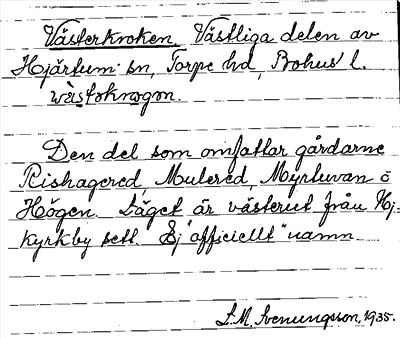 Västerkroken. Västliga delen av
Hjärtum sn, Torpe hd, Bohus l.
wästokrogon.
Den del som omfattar gårdarne
Rishagered, Mulered, Myrtuvan o
Högen. Läget är västerut från Hj.
kyrkby sett. Ej "officiellt" namn
S.M. Svenungsson, 1935.